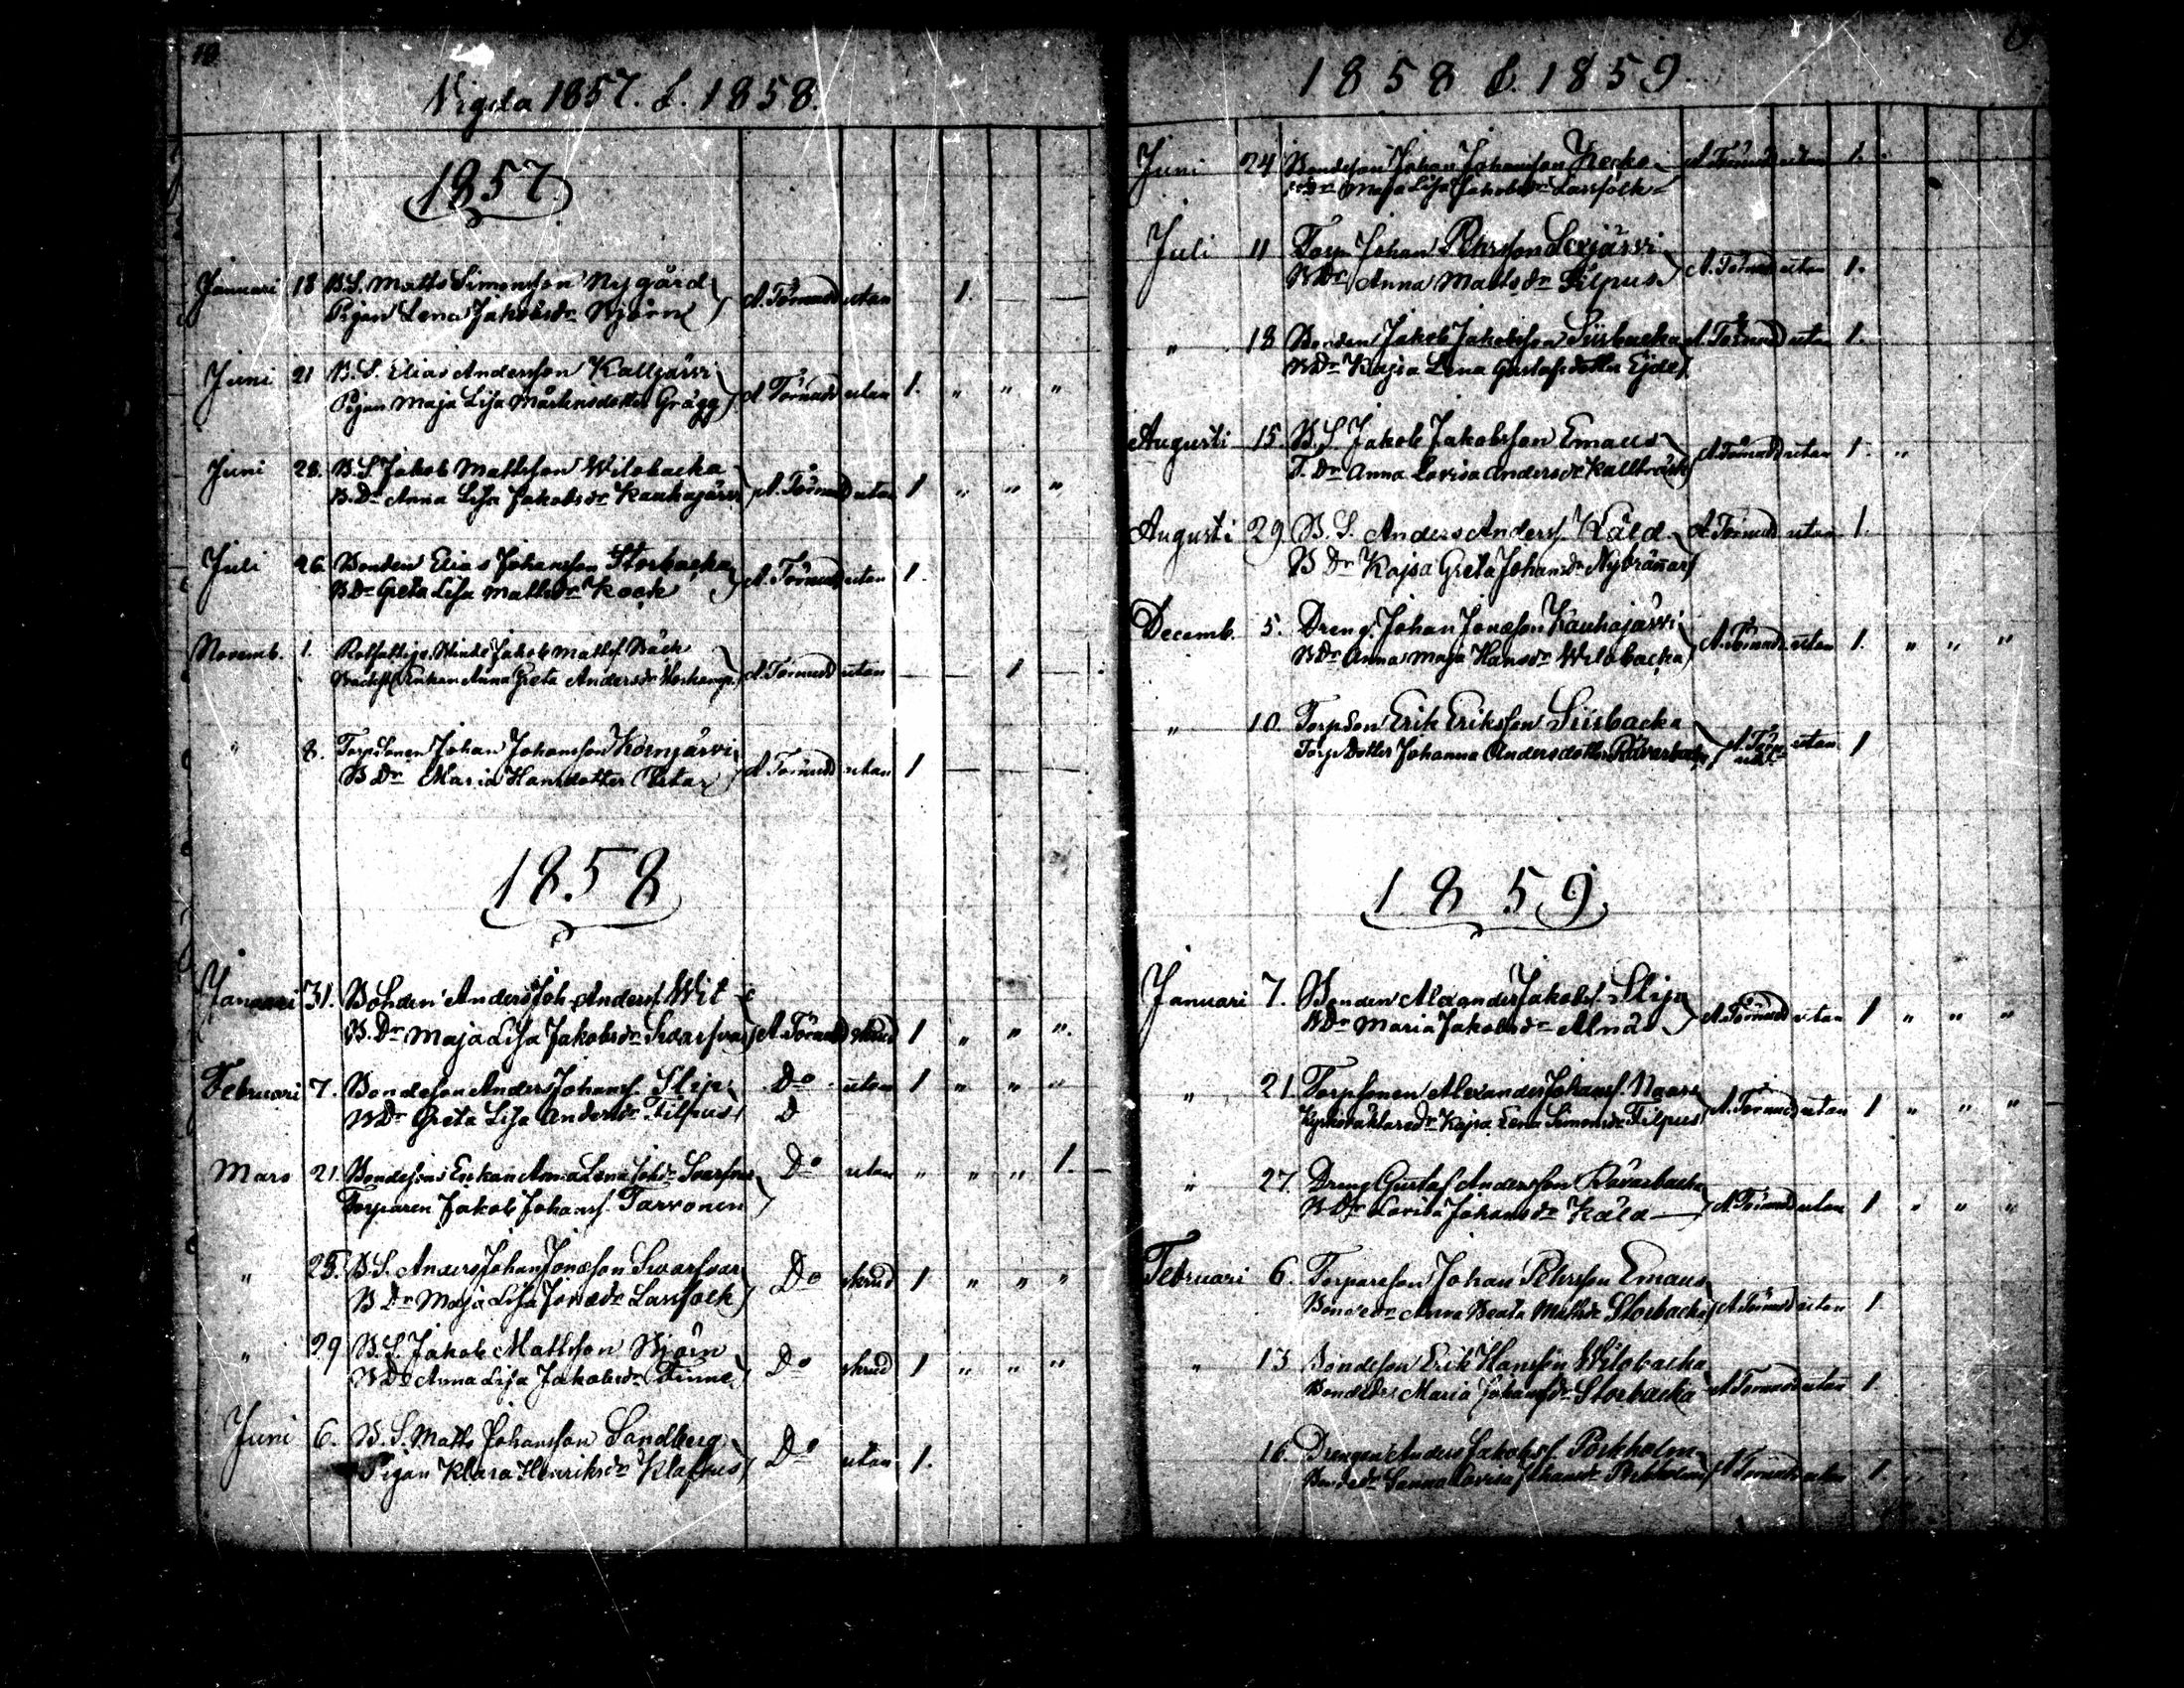 Vigda 1857. & 1858.
1857
Januari 18 B.S. Matts Simonsson Nygård
Pigan Lena Jakobsdr Björn A. Törnudd utan 1. — —
Juni 21 B.S. Elias Andersson Kalljärvi
Pigan Maja Lisa Mårtensdotter Grägg A. Törnudd utan 1. " " "
Juni 28. B.S. Jakob Mattsson Wilobacka
B.Dr Anna Lisa Jakobsdr Kauhajärvi A. Törnudd utan 1 " " "
Juli 26 Bonden Elias Johansson Storbacka
B Dr Greta Lisa Mattsdr Kock A. Törnudd utan 1.
Novemb. 1. Enkl. Jakob Mattss. Bäck
Enkan Anna Greta Andersdr A. Törnudd utan — — 1 —
" 8. Torpsonen Johan Johansson Kornjärvi
B Dr Maria Hansdotter A. Törnudd utan 1 — — —
1858
Januari 31. Bonden Anders Joh. Anderss. Wit
B. Dr Maja Lisa Jakobsdr Svarfvar A. Törnudd skrud 1 " " "
Februari 7. Bondeson Anders Johanss. Slip
B Dr Greta Lisa Andersdr Filpus Do utan 1 " " "
D
Mars 21. Bondesons Enkan Anna Lena Johdr Svarfvar Do utan " " " 1.
Torparen Jakob Johanss. Tarvonen
" 25. B.S. Anders Johan Jonasson Svarfvar
B Dr Maja Lisa Jonasdr Lassfolk Do skrud 1 " " "
" 29 B.S. Jakob Mattsson Björn
B Dr Anna Lisa Jakobsdr Finne Do skrud 1 " " "
Juni 6. B.S. Matts Johansson Sandberg
Pigan Klara Henriksdr Klafus Do utan 1.
1858 & 1859
Juni 24 Bondeson Johan Johansson A. Törnudd utan 1.
B Dr Maja Lisa Jakobsdr Lassfolk
Juli 11 Torp. Johan Pehrsson Lexjärvi
B Dr Anna Mattsdr Filpus A. Törnudd utan 1.
" 18 Bonden Jakob Jakobsson Siisbacka A. Törnudd utan 1.
B Dr Kajsa Lena Gustafsdotter Ejde
Augusti 15. B.S. Jakob Jakobsson Emaus
T. Dr Anna Lovisa Andersdr Kallträsk A. Törnudd utan 1. "
Augusti 29 B.S. Anders Anderss. Kåld A. Törnudd utan 1.
B Dr Kajsa Greta Johansdr Nybrännars
Decemb. 5. Dreng. Johan Jonasson Kauhajärvi
B Dr Anna Maja Hansdr Wilobacka A. Törnudd utan 1. " " "
" 10. Torpson Erik Eriksson Siisbacka
Torp. Dotter Johanna Andersdotter Råvarbacka A. Törnudd utan 1
1859
Januari 7. Bonden Alexander Jakobss. Slip
B Dr Maria Jakobsdr Alnäs A. Törnudd utan 1 " " "
" 21. Torpsonen Alexander Johanss. Naars
Kyrkovaktaredr Kajsa Lena Simonsdr Filpus A. Törnudd utan 1 " " "
" 27. Dreng. Gustaf Andersson Råvarbacka
B Dr Lovisa Johansdr Kåld A. Törnudd utan 1 " " "
Februari 6. Torpareson Johan Pehrsson Emaus
Bondedr Anna Beata Mattsdr Storbacka A. Törnudd utan 1.
" 13 Bondeson Erik Hansson Wilobacka
Bondedr Maria Johansdr Storbacka A. Törnudd utan 1.
16. Drengen Anders Jakobss. Pörkholm
Bondedr Sanna Lovisa Johansdr Pörkholm A. Törnudd utan 1.